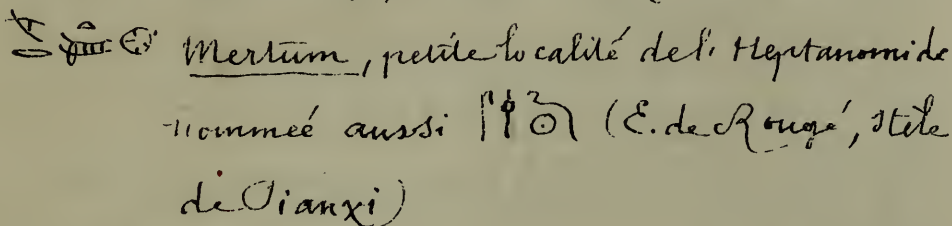 Mertum, petite localité de l'Heptanomide
nommeé aussi (E. de Rougé, Stèle
de Pianxi)